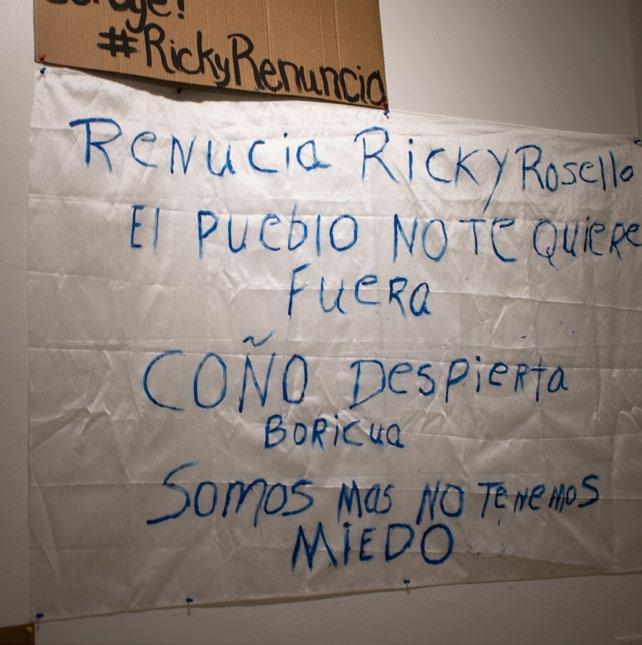 #RickyRenuncia
Renucia Ricky Rosello
El Pueblo NO TE QuieRe
FueRa
COÑO DespieRta
BoRicua
Somos mas NO TeNemos
MiEDO